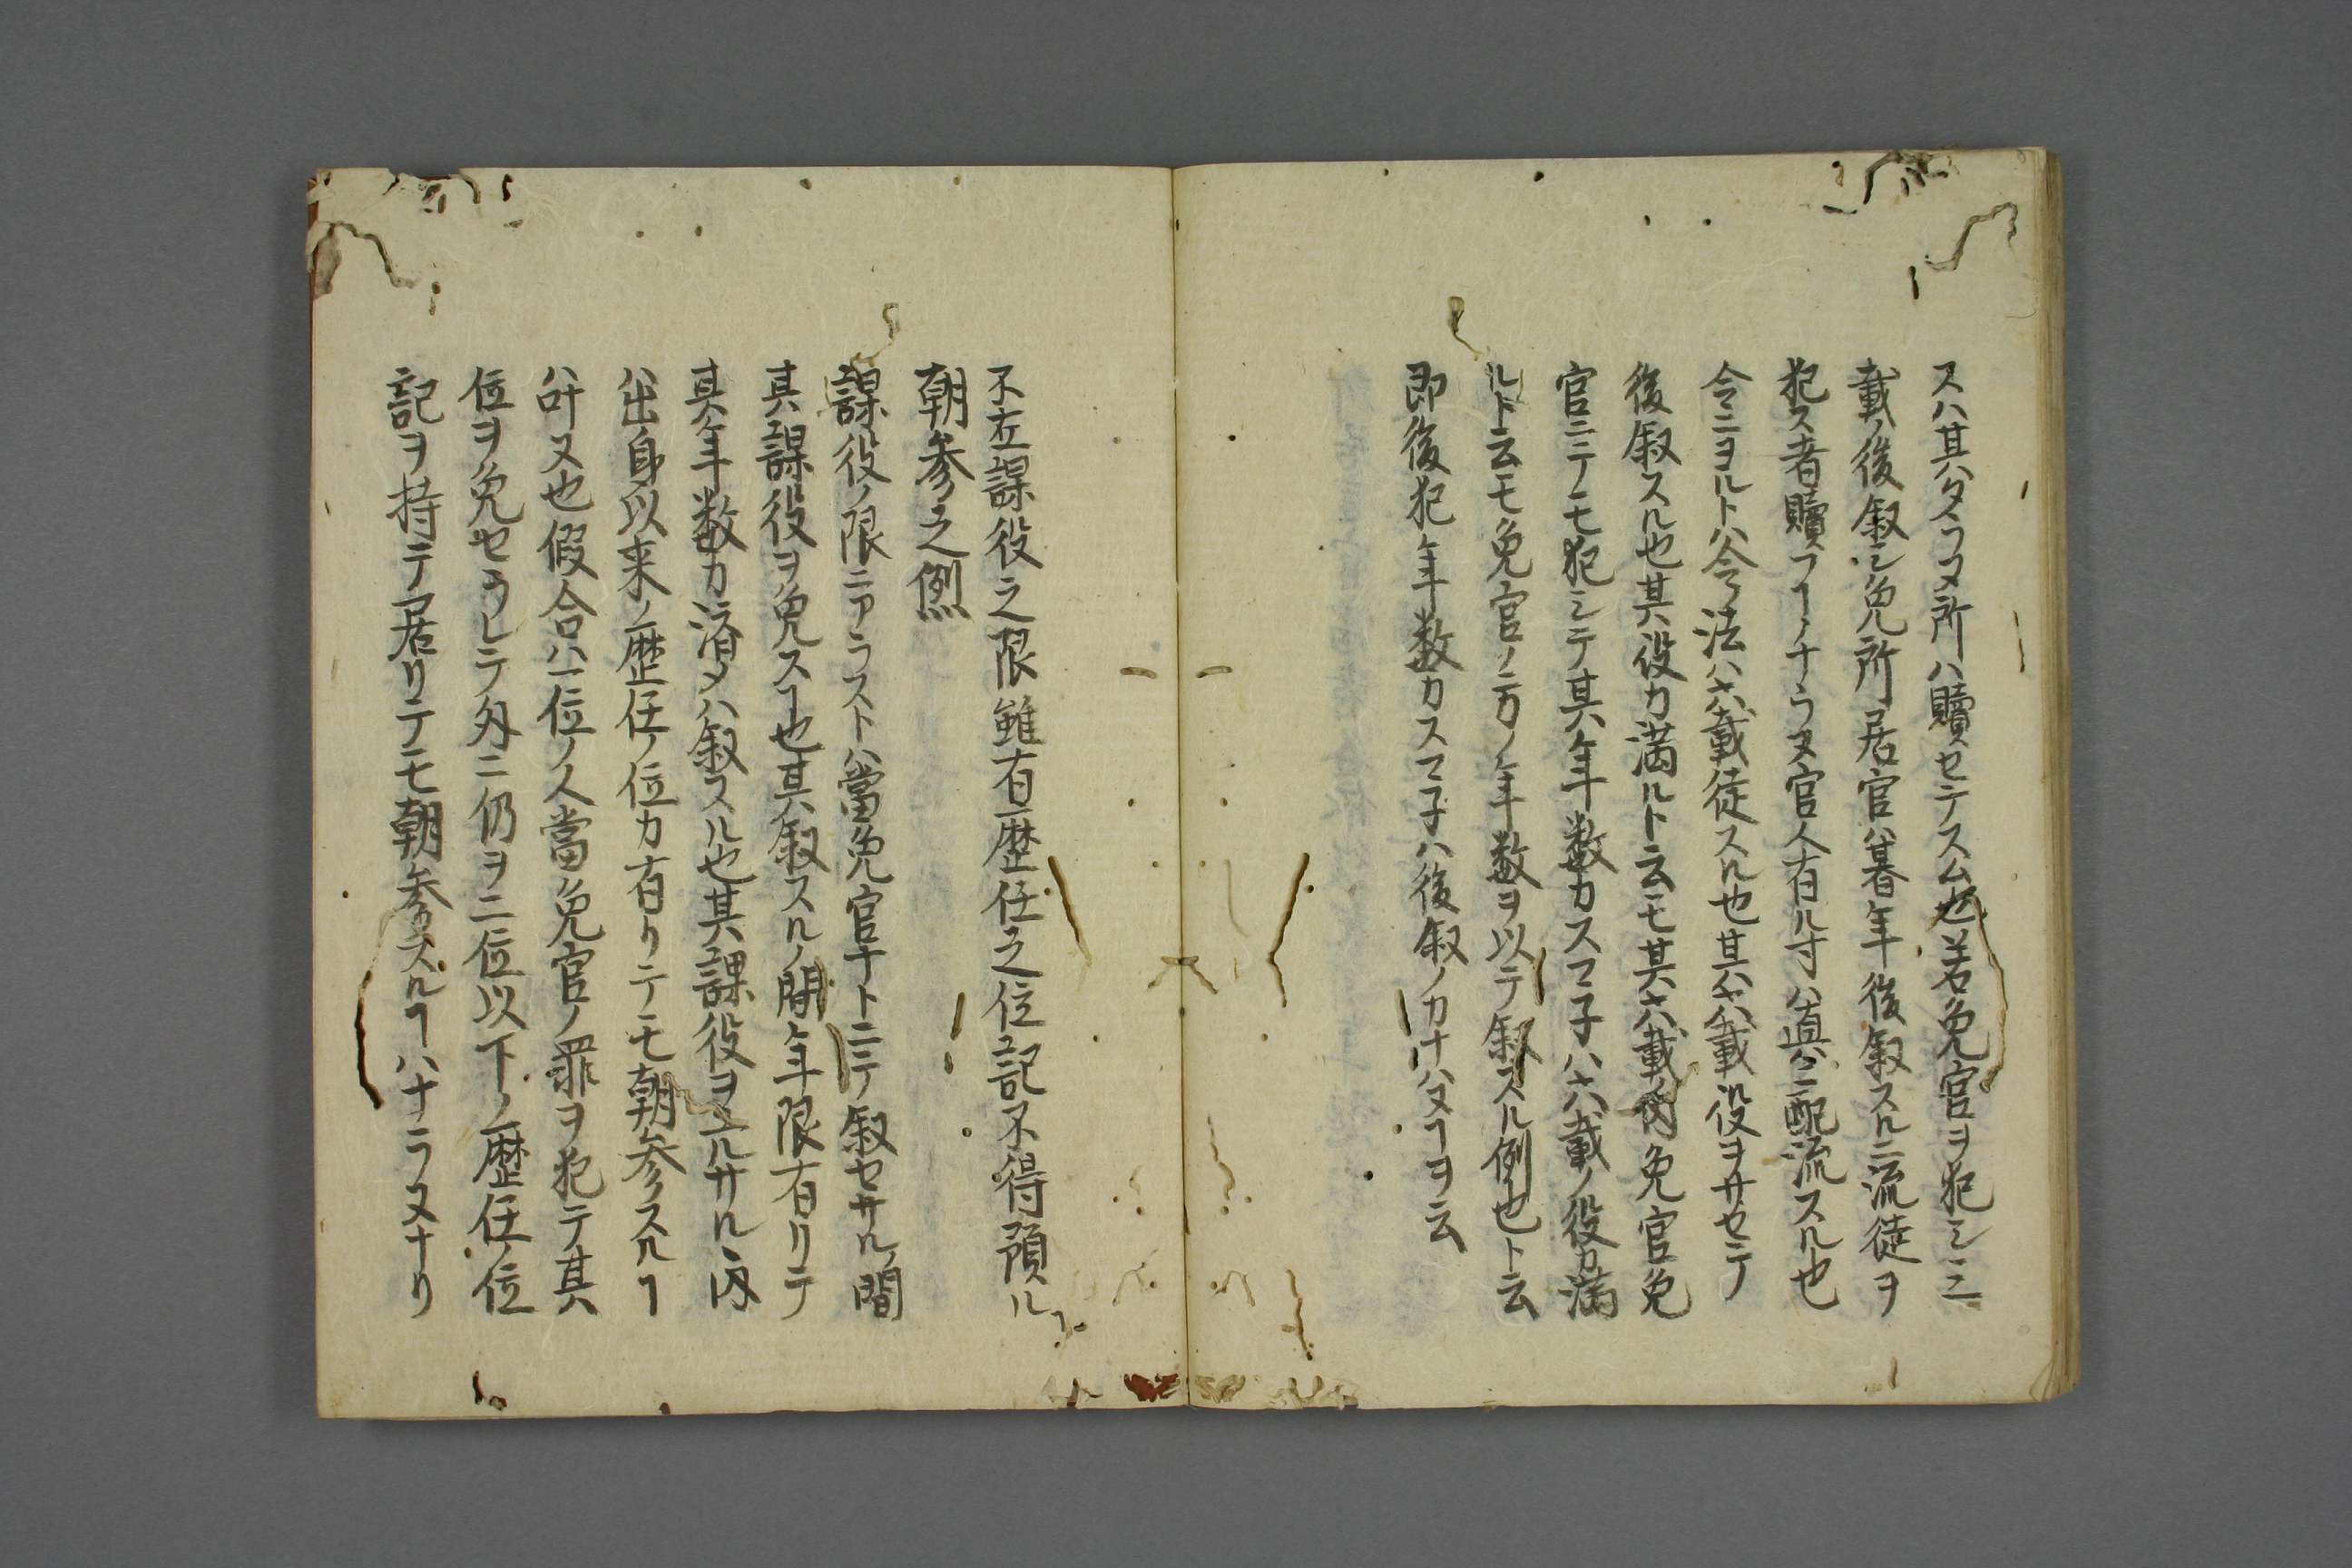 スハ其ハタラヌ所ハ贖セテスム也若免官ヲ犯シ三
載ノ後叙シ免所居官ハ朞年後叙スルニ流徒ヲ
犯ス者贖フヿノナラヌ官人有ル寸ハ真ニ配流スル也
令ニヨルトハ今法ハ六載徒スル也其六載役ヲサセテ
後叙スル也其役カ満ルト云モ其六載内免官免
官ニテノモ犯シテ其年数カスマ子ハ六載ノ役カ満
ルト云モ免官ノ方ノ年数ヲ以テ叙スル例也ト云
即後犯年数カスマ子ハ後叙ノカナハヌヿヲ云
不在課役之限雖有歴任之位記不得預ル
朝参之例
課役ノ限ニアラストハ當免官ナトニテ叙セサル間
其課役ヲ免スヿ也其叙スルノ間年限有リテ
其年数カ済メハ叙スル也其課役ヲユルサル内
ハ出身以来ノ歴任ノ位カ有リテモ朝参スルヿ
ハ叶ヌ也假令ハ一位ノ人當免官ノ罪ヲ犯テ其
位ヲ免セラレテ外ニ仍ヲ二位以下ノ歴任ノ位
記ヲ持テ居リテモ朝参スルヿハナラヌナリ